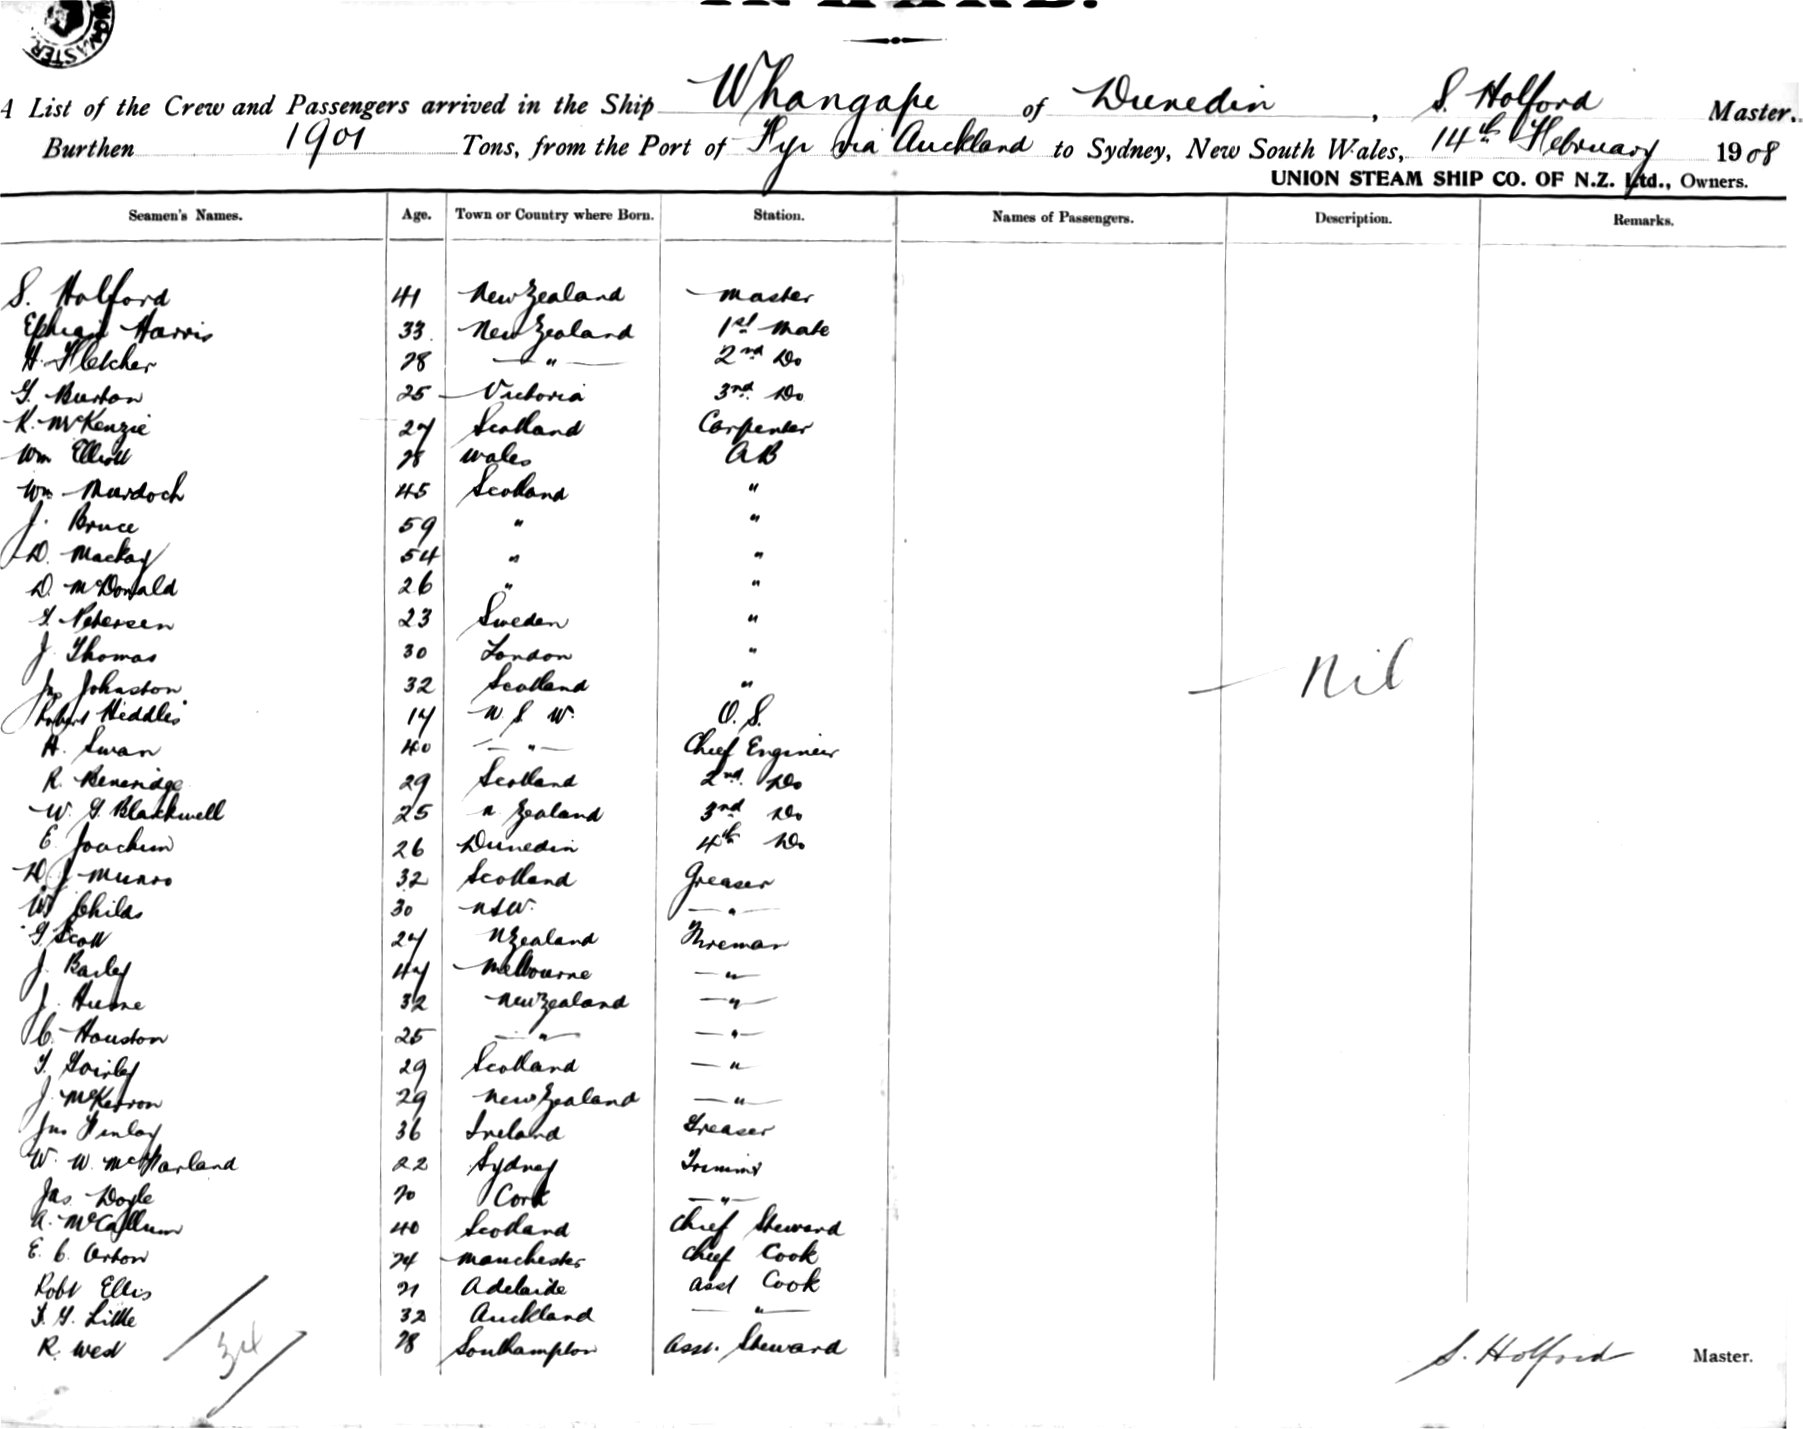 INWARD.
A List of the Crew and Passengers arrived in the Ship Whangape of Dunedin, S. Holford Master.
Burthen 1901 Tons, from the Port of Fiji via Auckland to Sydney, New South Wales, 14th February 1908
UNION STEAM SHIP CO. OF N.Z. Ltd., Owners.
Seamen's Names. Age. Town or Country where Born. Station. Names of Passengers. Description. Remarks.
S. Holford 41 New Zealand Master
Harris 33 New Zealand 1st Mate
H. Fletcher 28 — " — 2nd Do
G. Burton 25 Victoria 3rd Do
K. McKenzie 27 Scotland Carpenter
Wm Elliott 28 Wales AB
Wm Murdoch 45 Scotland "
J. Bruce 59 " "
D. Mackay 54 " "
D. McDonald 26 " "
Petersen 23 Sweden "
J. Thomas 30 London "
Jno Johnston 32 Scotland "
Robert Hiddlis 17 N. S. W. O. S.
A. Swan 40 — " — Chief Engineer
R. Beveridge 29 Scotland 2nd Do
W. G. Blackwell 25 N. Zealand 3rd Do
E. Joachim 26 Dunedin 4th Do
D J Munro 32 Scotland Greaser
W Childs 30 NSW. — " —
G Scott 27 N Zealand Fireman
J. Bailey 47 Melbourne — " —
J. 32 New Zealand — " —
C. Houston 25 — " — — " —
29 Scotland — "
J. McKerron 29 New Zealand — " —
Jno Finlay 36 Ireland Greaser
W. W. McFarland 22 Sydney Trimmer
Jas Doyle 20 Cork — " —
A. McCallum 40 Scotland Chief Steward
E. C. Orton 24 Manchester Chief Cook
Robt Ellis 21 Adelaide Asst Cook
Little 32 Auckland — " —
R. West 28 Southampton Asst. Steward
— Nil
34
S. Holford Master.